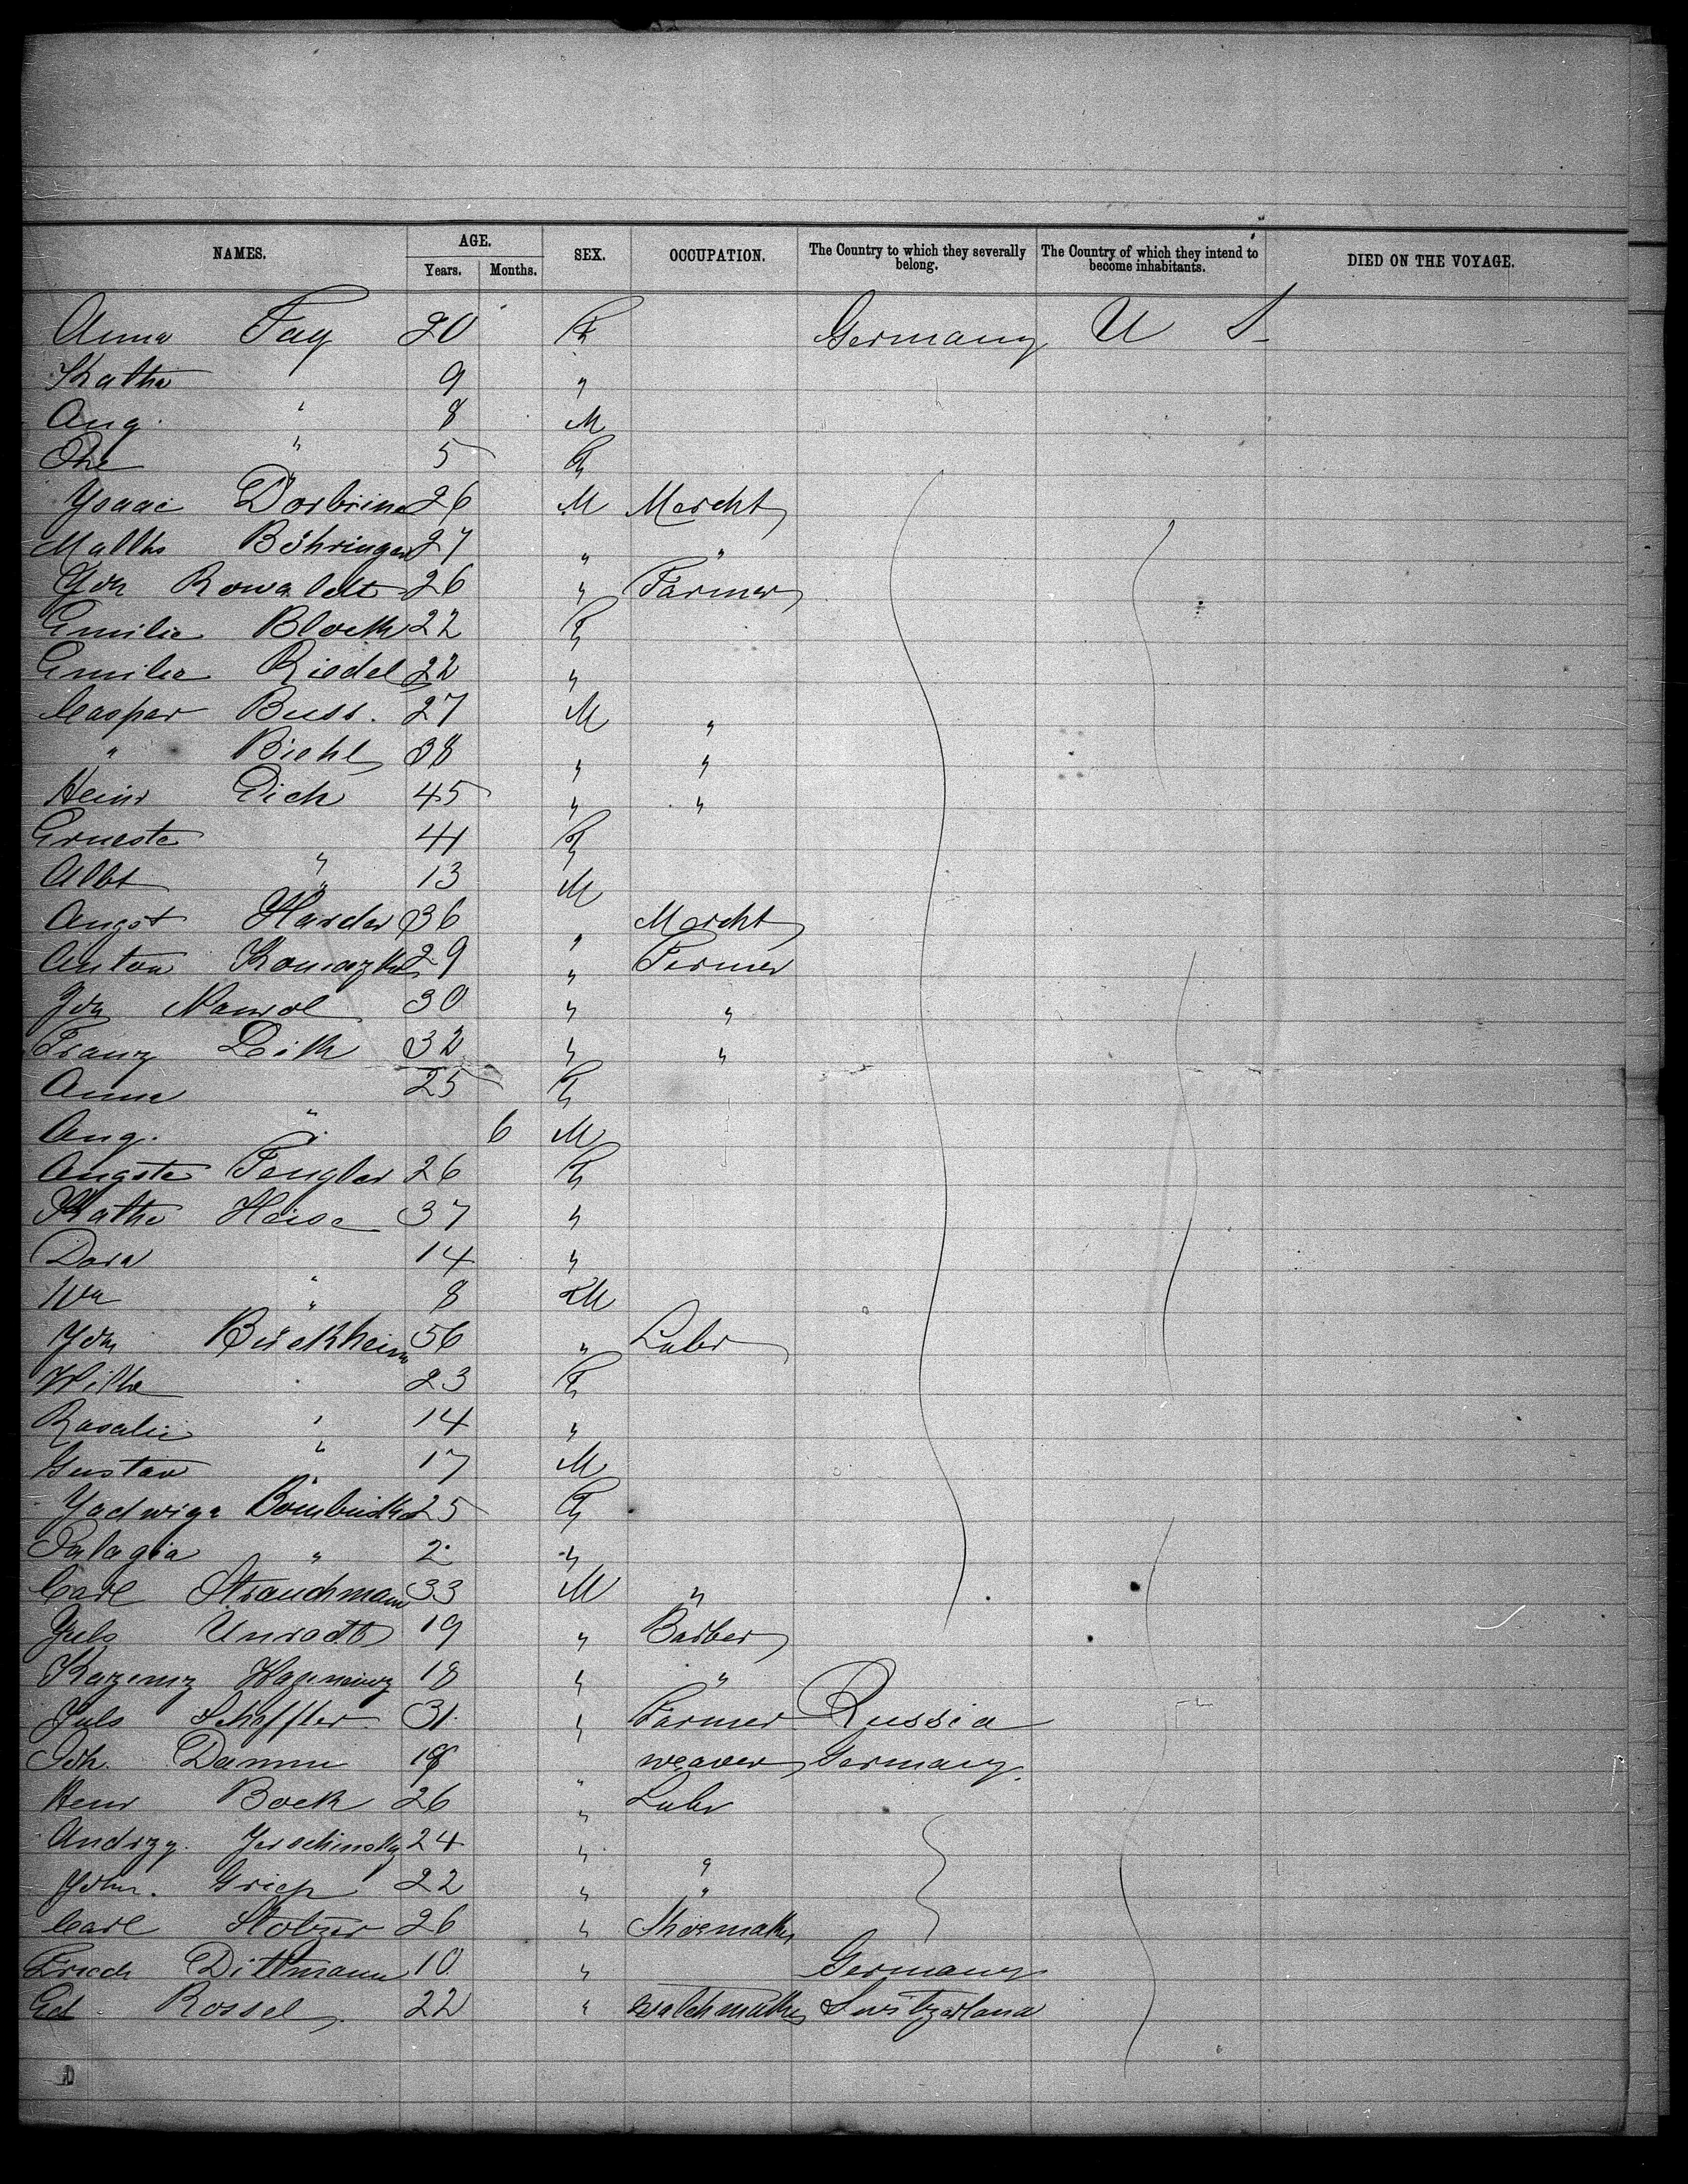 NAMES. AGE. Years. Months. SEX. OCCUPATION. The Country to which they severally belong. The Country of which they intend to become inhabitants. DIED ON THE VOYAGE.
Anna Fay 20 F Germany U S
Kathe 9 "
Aug. " 8 M
" 5 F
Ysaac Dorbrine 26 M Mercht
Böhringer 27 " "
Joh Rowaldt 26 " Farmer
Emilie Bloeth 22 F
Emilie Riedel 22 "
Caspar Buss. 27 M "
" Biehl 38 " "
Heinr Eich 45 " "
Erneste " 41 F
Albt " 13 M
Augst Harder 36 " Mercht
Anton 29 " Farmer
Joh 30 " "
Franz Leith 32 " "
Anna " 25 F
Aug. " 6 M
Augste Fengler 26 F
Kathe Heise 37 "
Dora " 14 "
Wm " 8 M
Joh Bürckheim 56 " Labr
Wilhe " 23 F
Rosalie " 14 "
Gustav " 17 M
Yadwiga 25 F
Palagia " 2 "
Carl Strauchmann 33 M "
Juls Unrodt 19 " Barber
Kazemz 18 " "
Juls Scheffler 31 " Farmer Russia
Joh. Damm 18 " weaver Germany
Henr Bock 26 " Labr
Andrzy. Jerochinsky 24 " "
John. Griep 22 " "
Carl Stolzer 26 " Shoemaker
Friedr Dittmann 10 " Germany
Ed Rossel 22 " watchmaker Switzerland